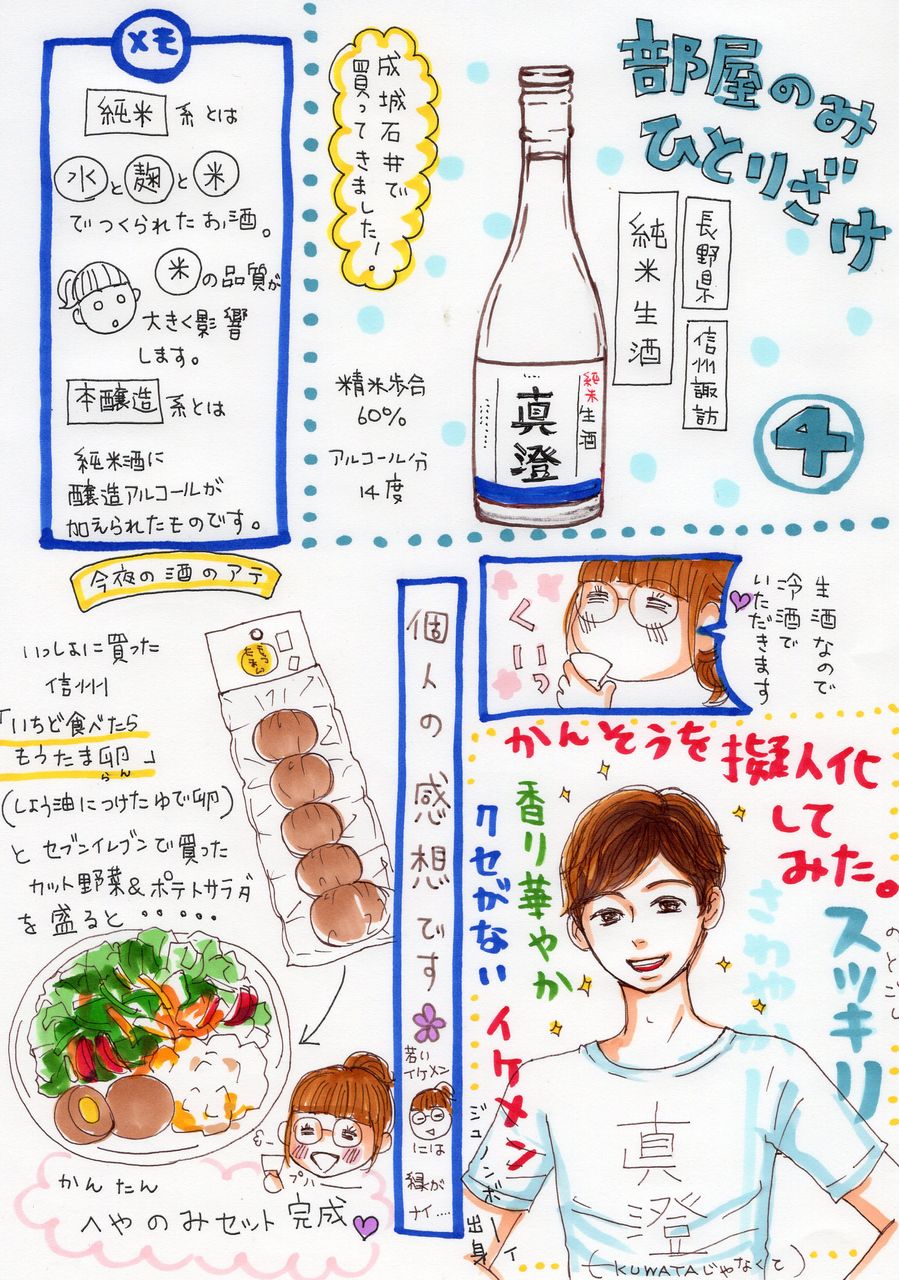 部屋のみ
ひとりざけ
④
長野県
信州諏訪
純米生酒
純米
生酒
真澄
成城石井で
買ってきました!
精米歩合
60%
アルコール分
14度
メモ
純米系とは
水と麹と米
でつくられたお酒。
米の品質が
大きく影響
します。
本醸造系とは
純米酒に
醸造アルコールが
加えられたものです。
生酒なので
冷酒で
いただきます
くいっ
今夜の酒のアテ
いっしょに買った
信州
「いちど食べたら
もうたま卵」
らん
(しょう油につけたゆで卵)
とセブンイレブンで買った
カット野菜&ポテトサラダ
を盛ると・・・・・・
プハー
かんたん
へやのみセット完成
個人の感想です
若い
イケメン
には
縁が
ナイ....
かんそうを擬人化
してみた。
香り華やか
クセがない
イケメン
さわやか
スッキリ
のどごし
ジュノンボーイ
出身
真澄
(KUWATAじゃなくて)